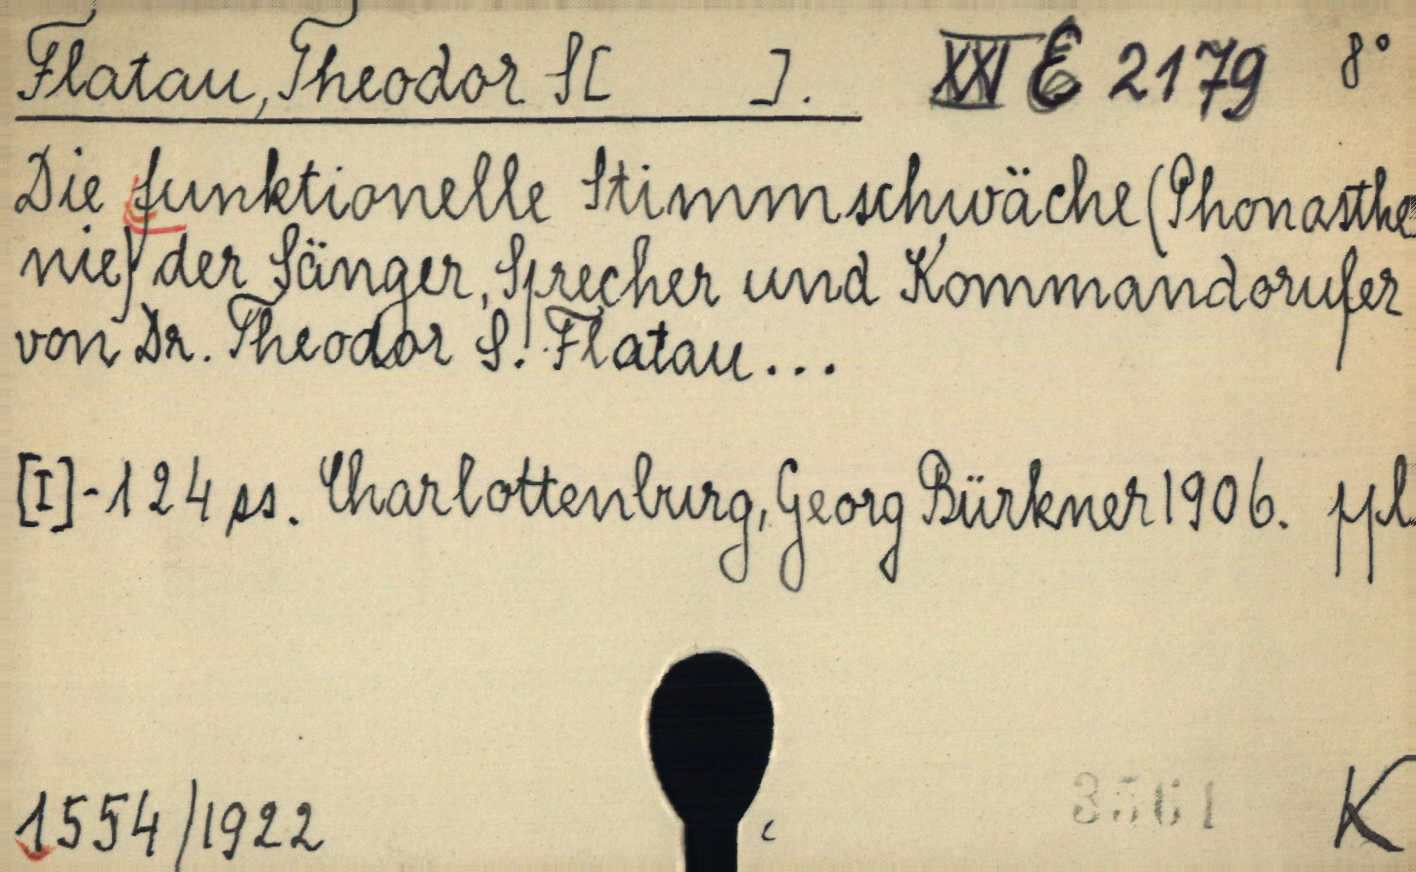 Flatau, Theodor S[ ]. XXI E 2179 8°
Die funktionelle Stimmschwäche (Phonasthe
nie) der Sänger, Sprecher und Kommandorufer
von Dr. Theodor S. Flatau...
[I]-124 ss. Charlottenburg, Georg Bürkner 1906. ppl.
1554/1922
K